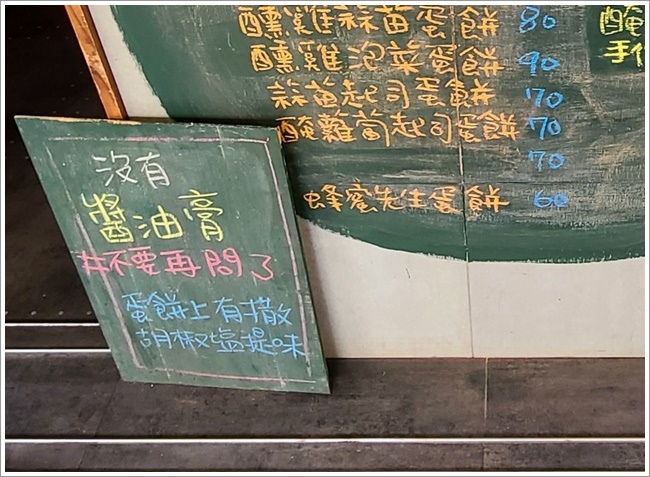 醺雞蒜苗蛋餅 80
醺雞泡菜蛋餅 90
蒜苗起司蛋餅 70
醃蘿蔔起司蛋餅 70
70
蜂蜜先生蛋餅 60
醃
手
沒有
醬油膏
#不要再問了
蛋餅上有撒
胡椒塩提味